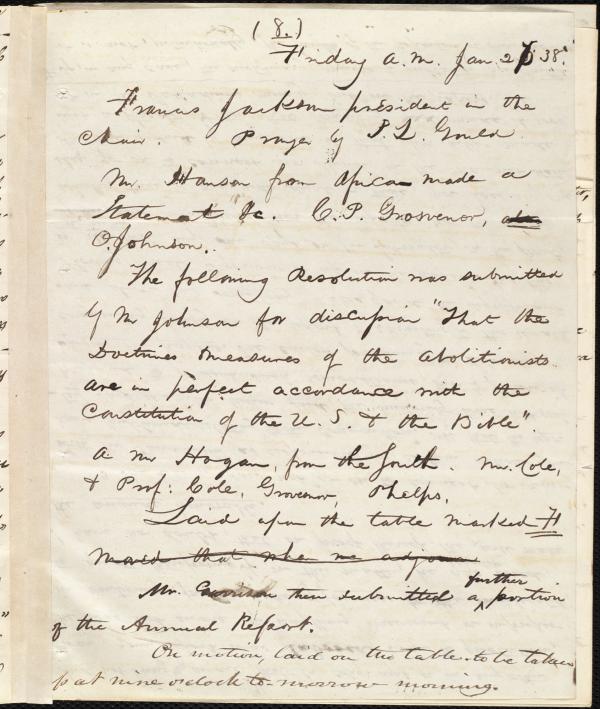 ( 8. )
Friday A.M. Jan. 26 38.
Francis Jackson president in the
Chair. Prayer by S. L. Gould
Mr. Hanson from Africa made a
Statement &c. C. P. Grosvenor,
O. Johnson.
The following Resolution was submitted
by Mr Johnson for discussion "That the
Doctrines & measures of the Abolitionists
are in perfect accordance with the
Constitution of the U. S. & the Bible".
A Mr Hogan, from the South. Mr. Cole,
& Prof: Cole, Grovenor, Phelps,
Laid upon the table marked H
Moved that when we adjourn
Mr. Garrison then submitted a further portion
of the Annual Report.
On motion, laid on the table to be taken
up at nine o'clock to-morrow morning.